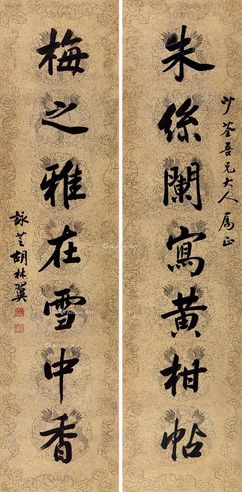 少荃吾兄大人屬正
朱絲闌寫黃柑帖
梅之雅在雪中香
詠芝胡林翼